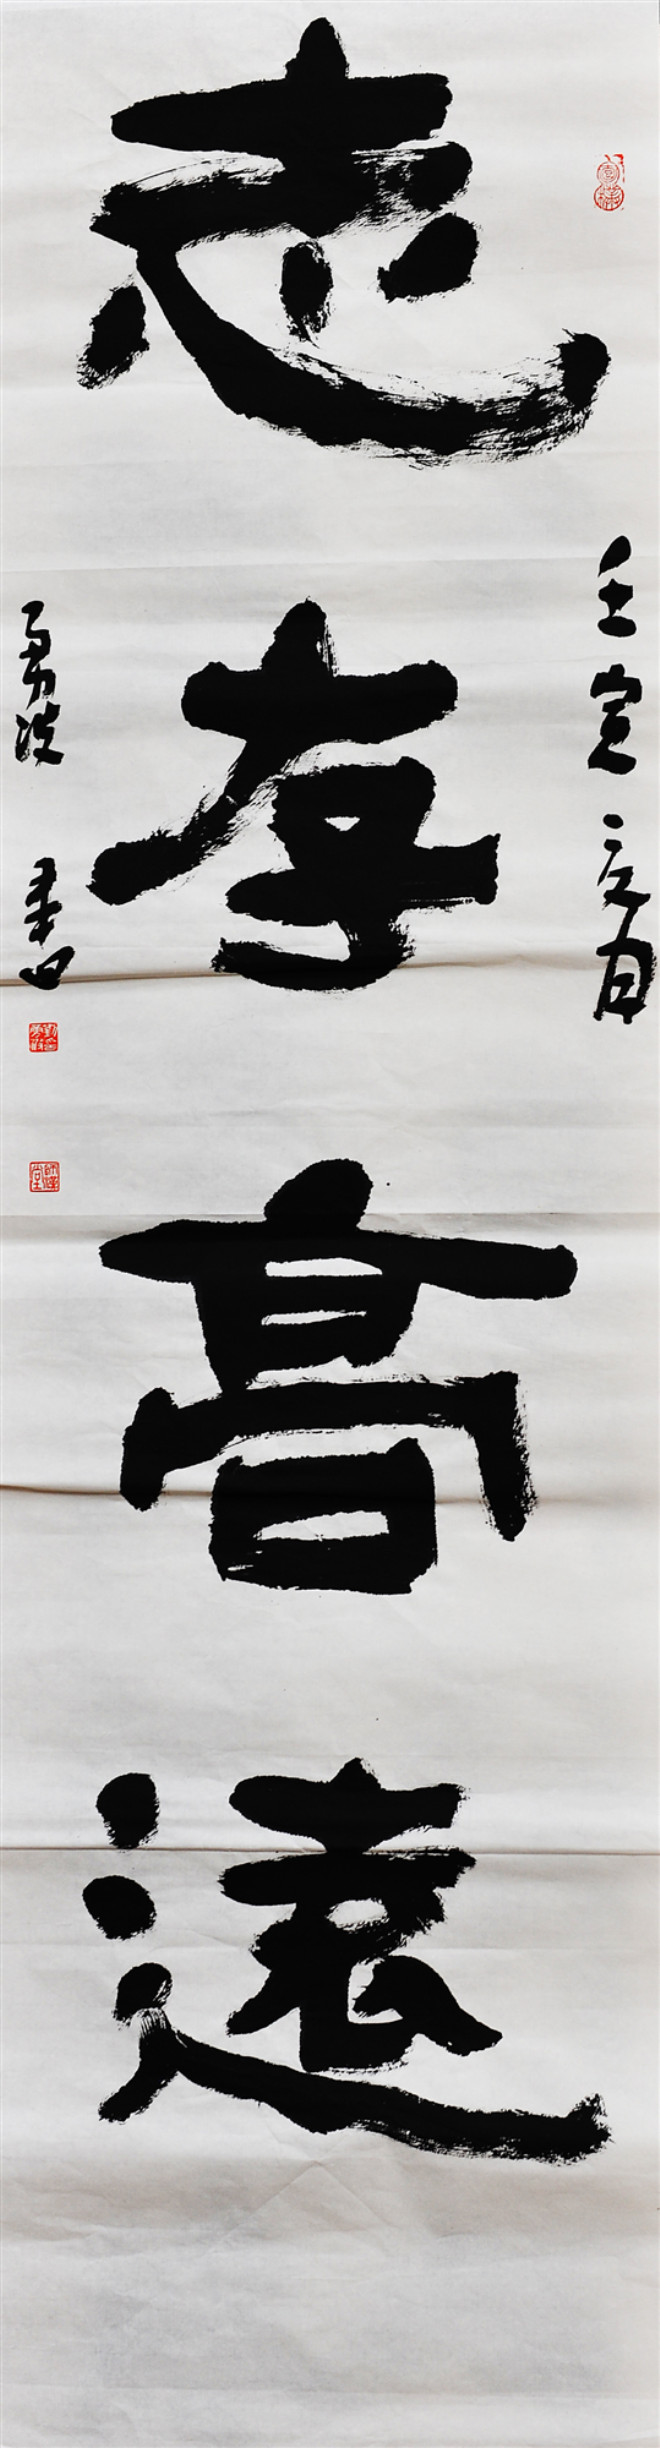 志存高遠
壬寅二月
勇波書